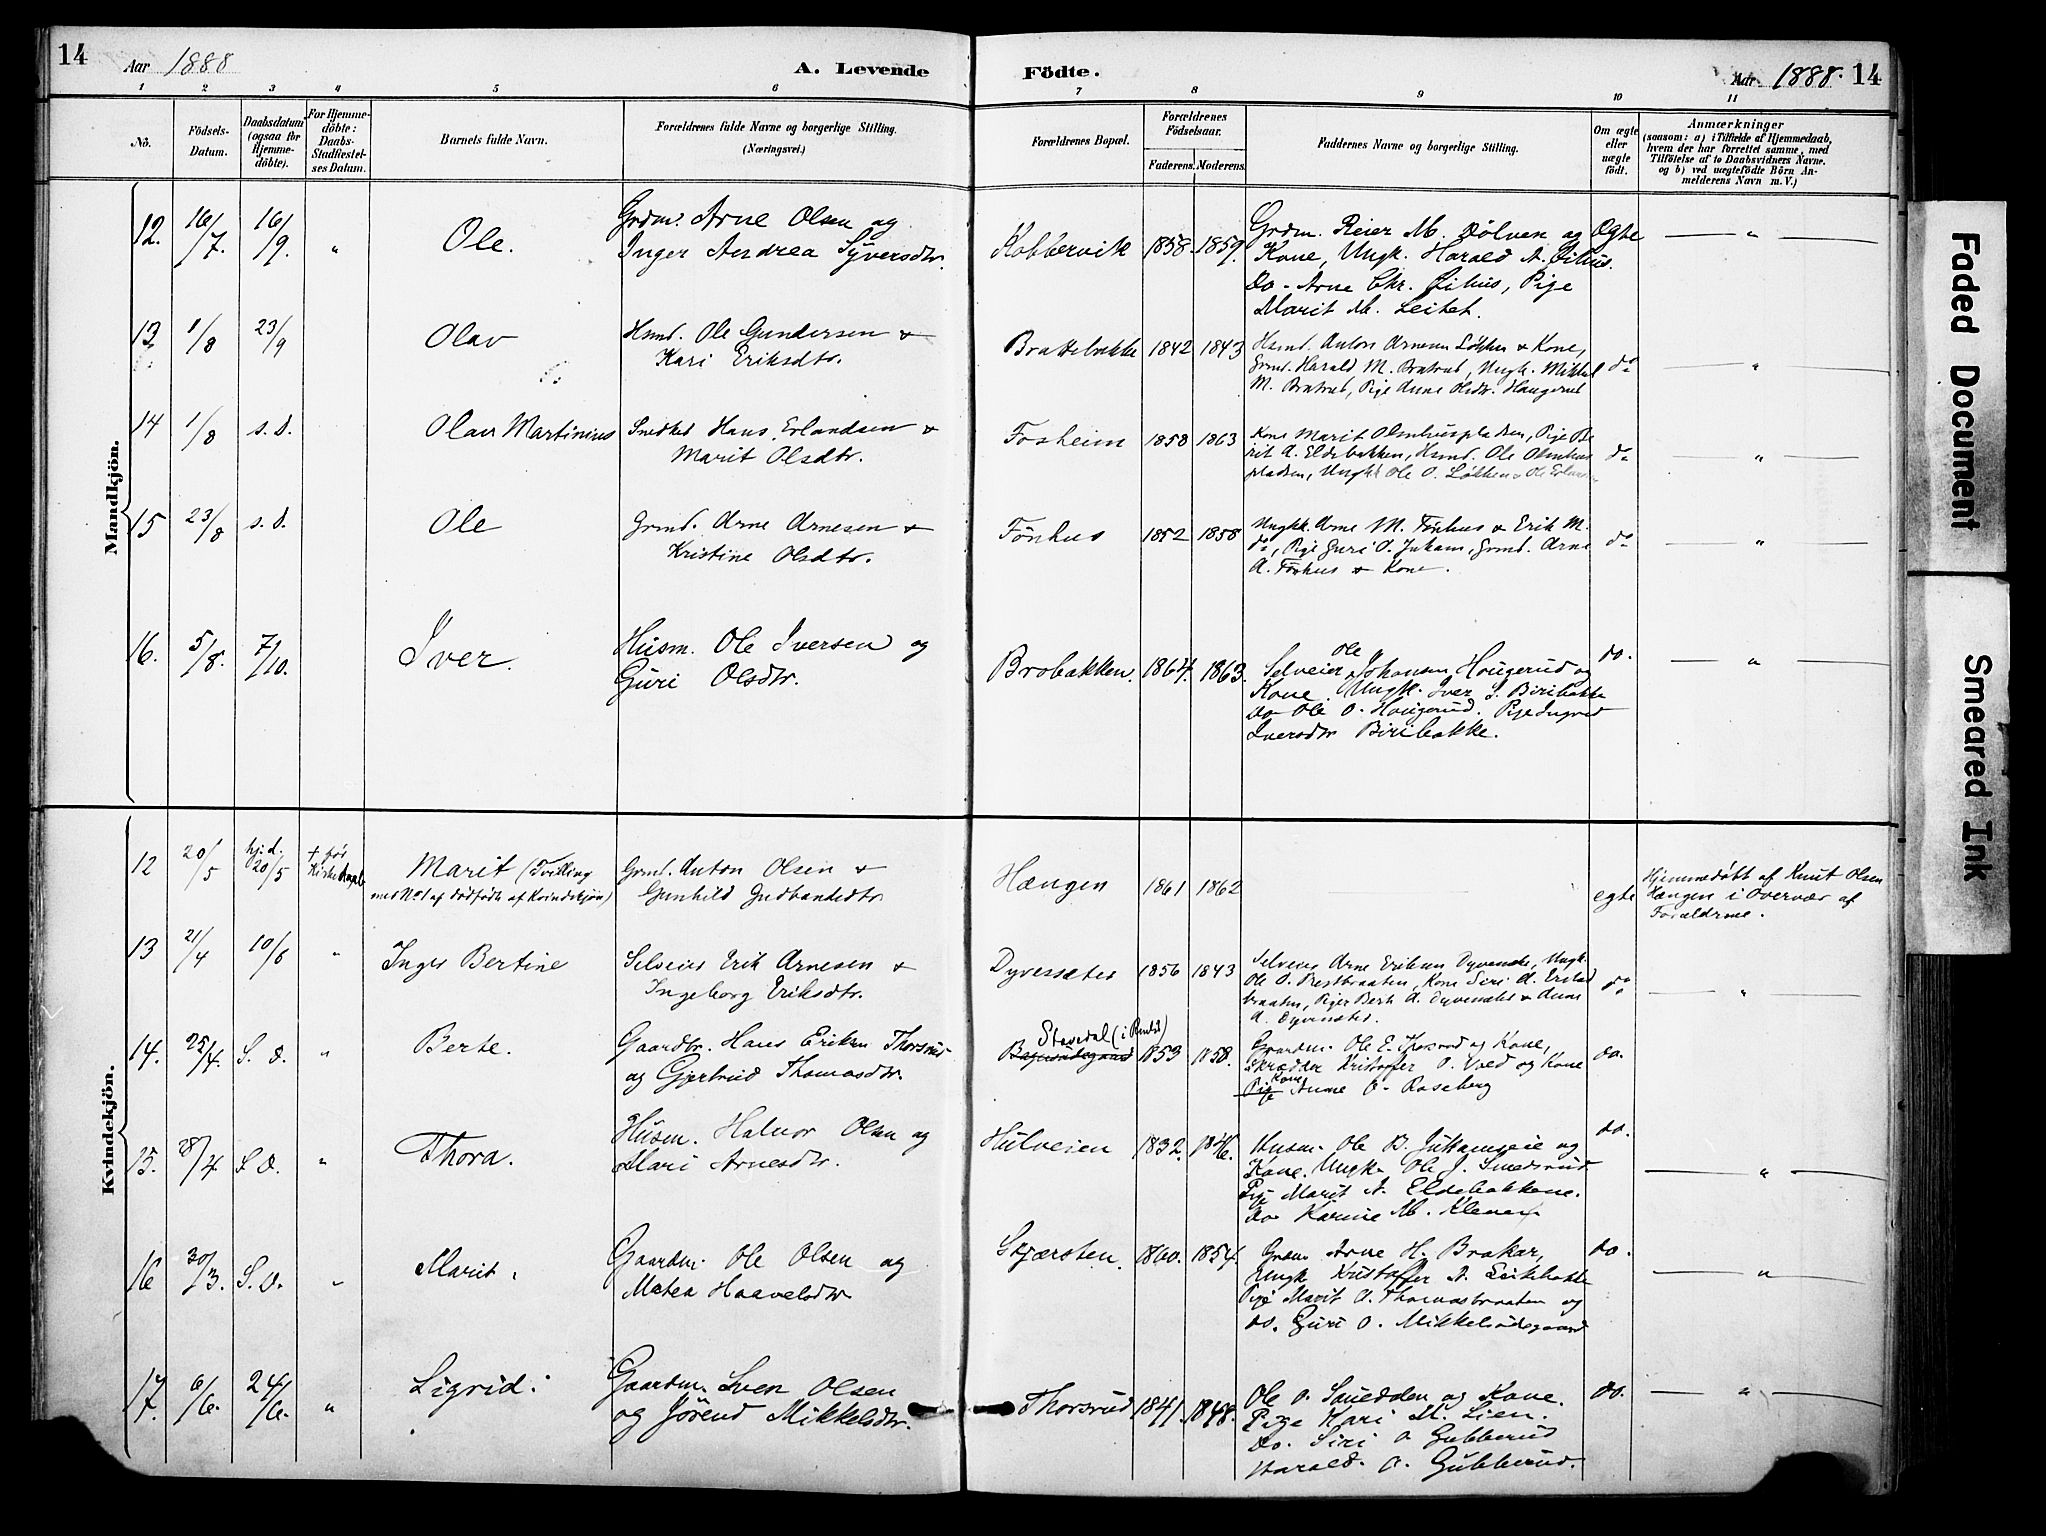 14
Aar 1888
A. Levende
Födte.
Aar 1888. 14
1 2 3 4 5 6 7 8 9 10 11
No.
Födsels-
Datum.
Daabsdatum
(ogsaa for
Hjemme-
döbte).
For Hjemme-
döbte:
Daabs-
Stadfæstel-
ses Datum.
Barnets fulde Navn.
Forældrenes fulde Navne og borgerlige Stilling.
(Næringsvei.)
Forældrenes Bopæl.
Forældrenes
Födselsaar.
Faderens. Moderens.
Faddernes Navne og borgerlige Stilling.
Om ægte
eller
uægte
födt.
Anmærkninger
(saasom: a) i Tilfælde af Hjemmedaab,
hvem der har forrettet samme, med
Tilföielse af to Daabsvidners Navne.
og b) ved uægtefödte Börn An-
melderens Navn m. V.)
Mandkjön.
12. 16/7. 16/9. " Ole.
Grdm. Arne Olsen og
Inger Andrea Syversdtr.
Kobbervik 1858. 1859.
Grdm. Reier M. Dölven og
Kone, Ungk. Harald A.
Do - Arne Chr. Pige
Marit M. Leitet.
Egte — " —
13 1/8 23/9 Olav
Hsmd. Ole Gundersen &
Kari Eriksdtr.
Brattebakke 1842 1843
Hsmd. Anton Arnesen Løkken & Kone,
Grmd. Harald M. Bratrud, Ungk. Mikkel
M. Bratrud, Pige Anne Olsdtr. Haugerud
do — " —
14 1/8 s. d. Olav Martinius
Snedker Hans Erlandsen &
Marit Olsdtr.
Fosheim 1858 1863
Kone Marit Olmhuspladsen, Pige Be-
rit A. Eldebakken, Hsmd. Ole Olmhus
pladsen, Ungk Ole O. Løkken &
do — " —
15 23/8 s. d. Ole
Grmd. Arne Arnesen &
Kristine Olsdtr.
Fönhus 1852 1858
Ungkk. Arne M. Fönhus & Erik M.
do, Pige Guri O. Juham, Grmd. Arne
A. Fönhus & Kone.
do — " —
16. 5/8. 7/10. Iver.
Husm. Ole Iversen og
Guri Olsdtr.
Brobakken. 1864. 1863.
Ole
Selveier Johansen Hougerud og
Kone. Ungk. Iver I. Biribakke
Do Ole O. Hougerud. Pige Ingrid
Iversdtr Biribakke.
do. — " —
Kvindekjön.
12 20/5 hj.d. 20/5 † før
Marit (Tvilling
med No 1 af dødfødte af Kvindekjøn)
Grmd. Anton Olsen &
Gunhild Gudbrandsdtr
Hængen 1861 1862
egte
Hjemmedøbt af Knut Olsen
Hængen i Overvær af
Forældrene.
13 21/4 10/6 " Inger Bertine
Selveier Erik Arnesen &
Ingeborg Eriksdtr.
Dyvesæter 1856 1843
Selveier Arne Eriksen Dyvesæter, Ungk.
Ole O. Prestbraaten, Kone Siri A. Erstad
braaten, Piger Berte A. Dyvesæter & Anne
A. Dyvesæter.
do — " —
14. 25/4. S. D. " Berte.
Gaardbr. Hans Eriksen Thorsrud
og Gjertrud Thomasdtr.
Stavedal (i
1853 1858.
Gaardm. Ole E. Thorsrud og Kone,
Skrædder Kristoffer O. Vold og Kone
Kone
Pige Anne O. Roseberg
do.
15. 28/4 S. D. " Thora.
Husm. Halvor Olsen og
Mari Arnesdtr.
Hulveien 1832. 1846.
Husm. Ole B. Juthameie og
Kone. Ungk. Ole J. Smedsrud
Pige Marit A. Eldebakkene.
Do Karine M.
do. — " —
16 30/3. S. D. " Marit.
Gaardm. Ole Olsen og
Matea Haavelsdtr
Skjærsten. 1860. 1854.
Grdm Arne H. Brakar,
Ungk Kristoffer A.
Pige Marit O. Thomasbraaten og
do. Guri O. Mikkelsødegaard
do. — " —
17. 6/6. 24/6. " Sigrid.
Gaardm. Sven Olsen
og Jörend Mikkelsdtr.
Thorsrud 1841. 1848.
Ole O. Snuedden og Kone.
Pige Kari M. Lien.
Do. Siri O Gubberud
Harald O. Gubberud.
do. — " —
Faded Document
Smeared Ink